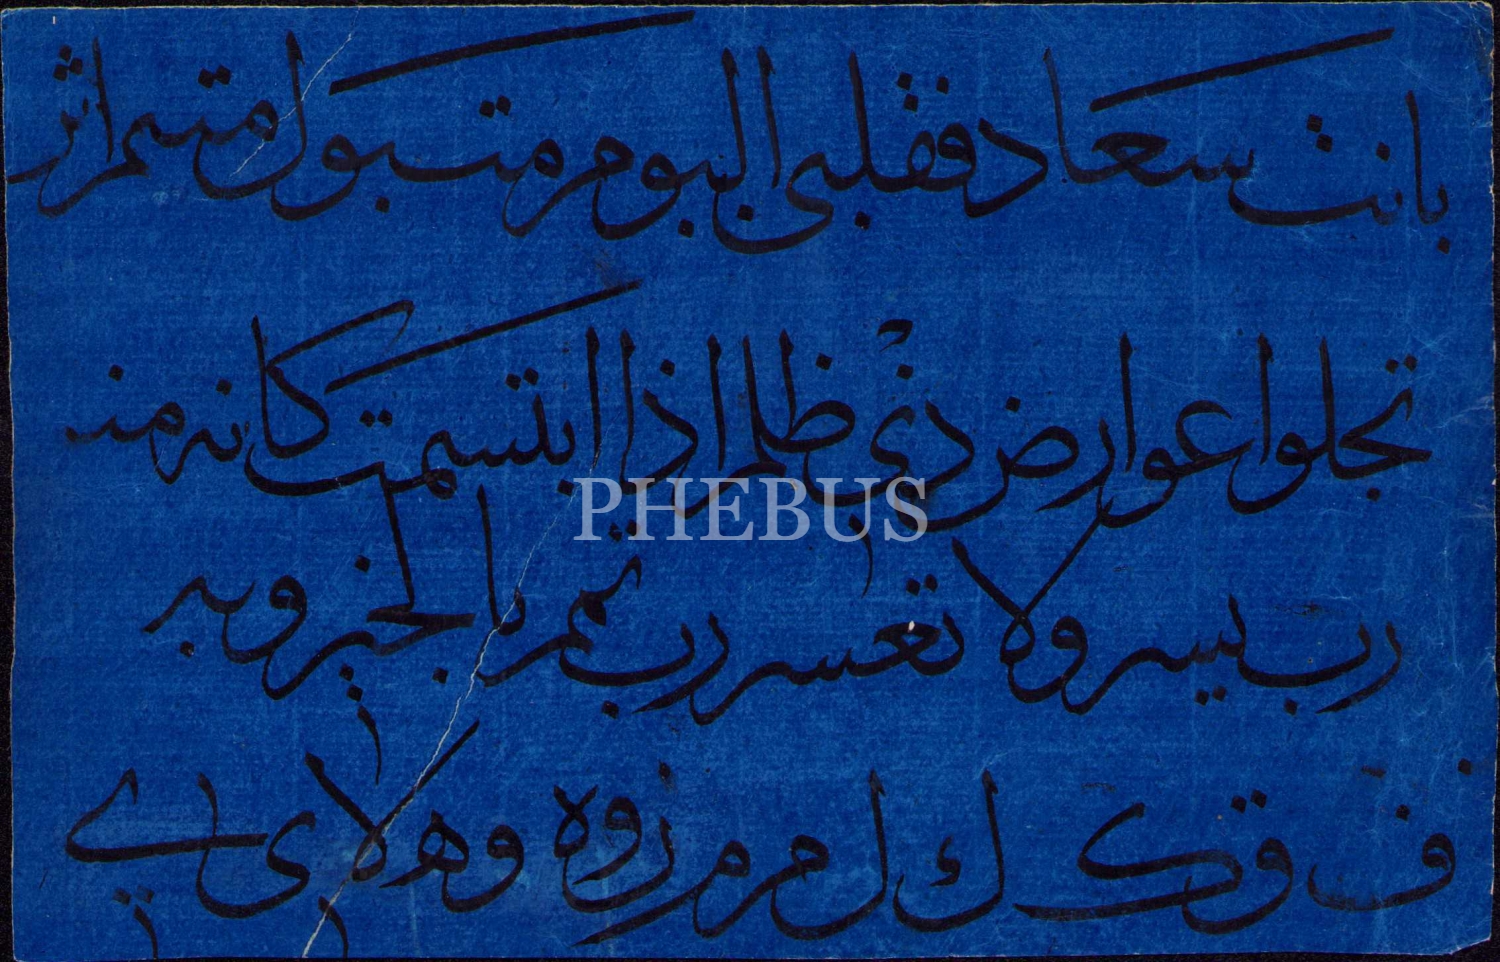 بانت سعاد فقلبي اليوم متبول متيم اثر
تجلوا عوارض ذي ظلم اذا ابتسمت كانه منه
PHEBUS
رب يسر ولا تعسر رب تمم بالخير وبه
ف ق ك ك ل م م ن و ه و ه لا ي ے